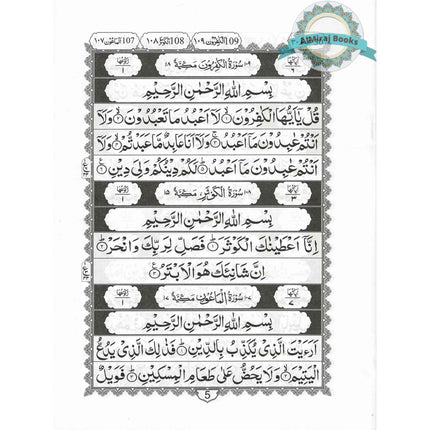 AlMiraj Books
الماعون ١٠٧ 107 الكوثر ١٠٨ 108 الكفرون ١٠٩ 109
اٰیاتھا ٦ ١٠٩ سُوْرَةُ الْكٰفِرُوْنَ مَكِّيَّةٌ ١٨ رکوعھا ١
بِسْمِ اللّٰهِ الرَّحْمٰنِ الرَّحِيْمِ
قُلْ يٰۤاَيُّهَا الْكٰفِرُوْنَ ۙ١ لَاۤ اَعْبُدُ مَا تَعْبُدُوْنَ ۙ٢ وَلَاۤ
اَنْتُمْ عٰبِدُوْنَ مَاۤ اَعْبُدُ ۚ٣ وَلَاۤ اَنَا عَابِدٌ مَّا عَبَدْتُّمْ ۙ٤ وَلَاۤ
اَنْتُمْ عٰبِدُوْنَ مَاۤ اَعْبُدُ ؕ٥ لَكُمْ دِيْنُكُمْ وَلِيَ دِيْنِ ٦
اٰیاتھا ٣ ١٠٨ سُوْرَةُ الْكَوْثَرِ مَكِّيَّةٌ ١٥ رکوعھا ١
بِسْمِ اللّٰهِ الرَّحْمٰنِ الرَّحِيْمِ
اِنَّاۤ اَعْطَيْنٰكَ الْكَوْثَرَ ؕ١ فَصَلِّ لِرَبِّكَ وَانْحَرْ ؕ٢
اِنَّ شَانِئَكَ هُوَ الْاَبْتَرُ ٣
اٰیاتھا ٧ ١٠٧ سُوْرَةُ الْمَاعُوْنِ مَكِّيَّةٌ ١٧ رکوعھا ١
بِسْمِ اللّٰهِ الرَّحْمٰنِ الرَّحِيْمِ
اَرَءَيْتَ الَّذِيْ يُكَذِّبُ بِالدِّيْنِ ؕ١ فَذٰلِكَ الَّذِيْ يَدُعُّ
الْيَتِيْمَ ۙ٢ وَلَا يَحُضُّ عَلٰى طَعَامِ الْمِسْكِيْنِ ؕ٣ فَوَيْلٌ
5